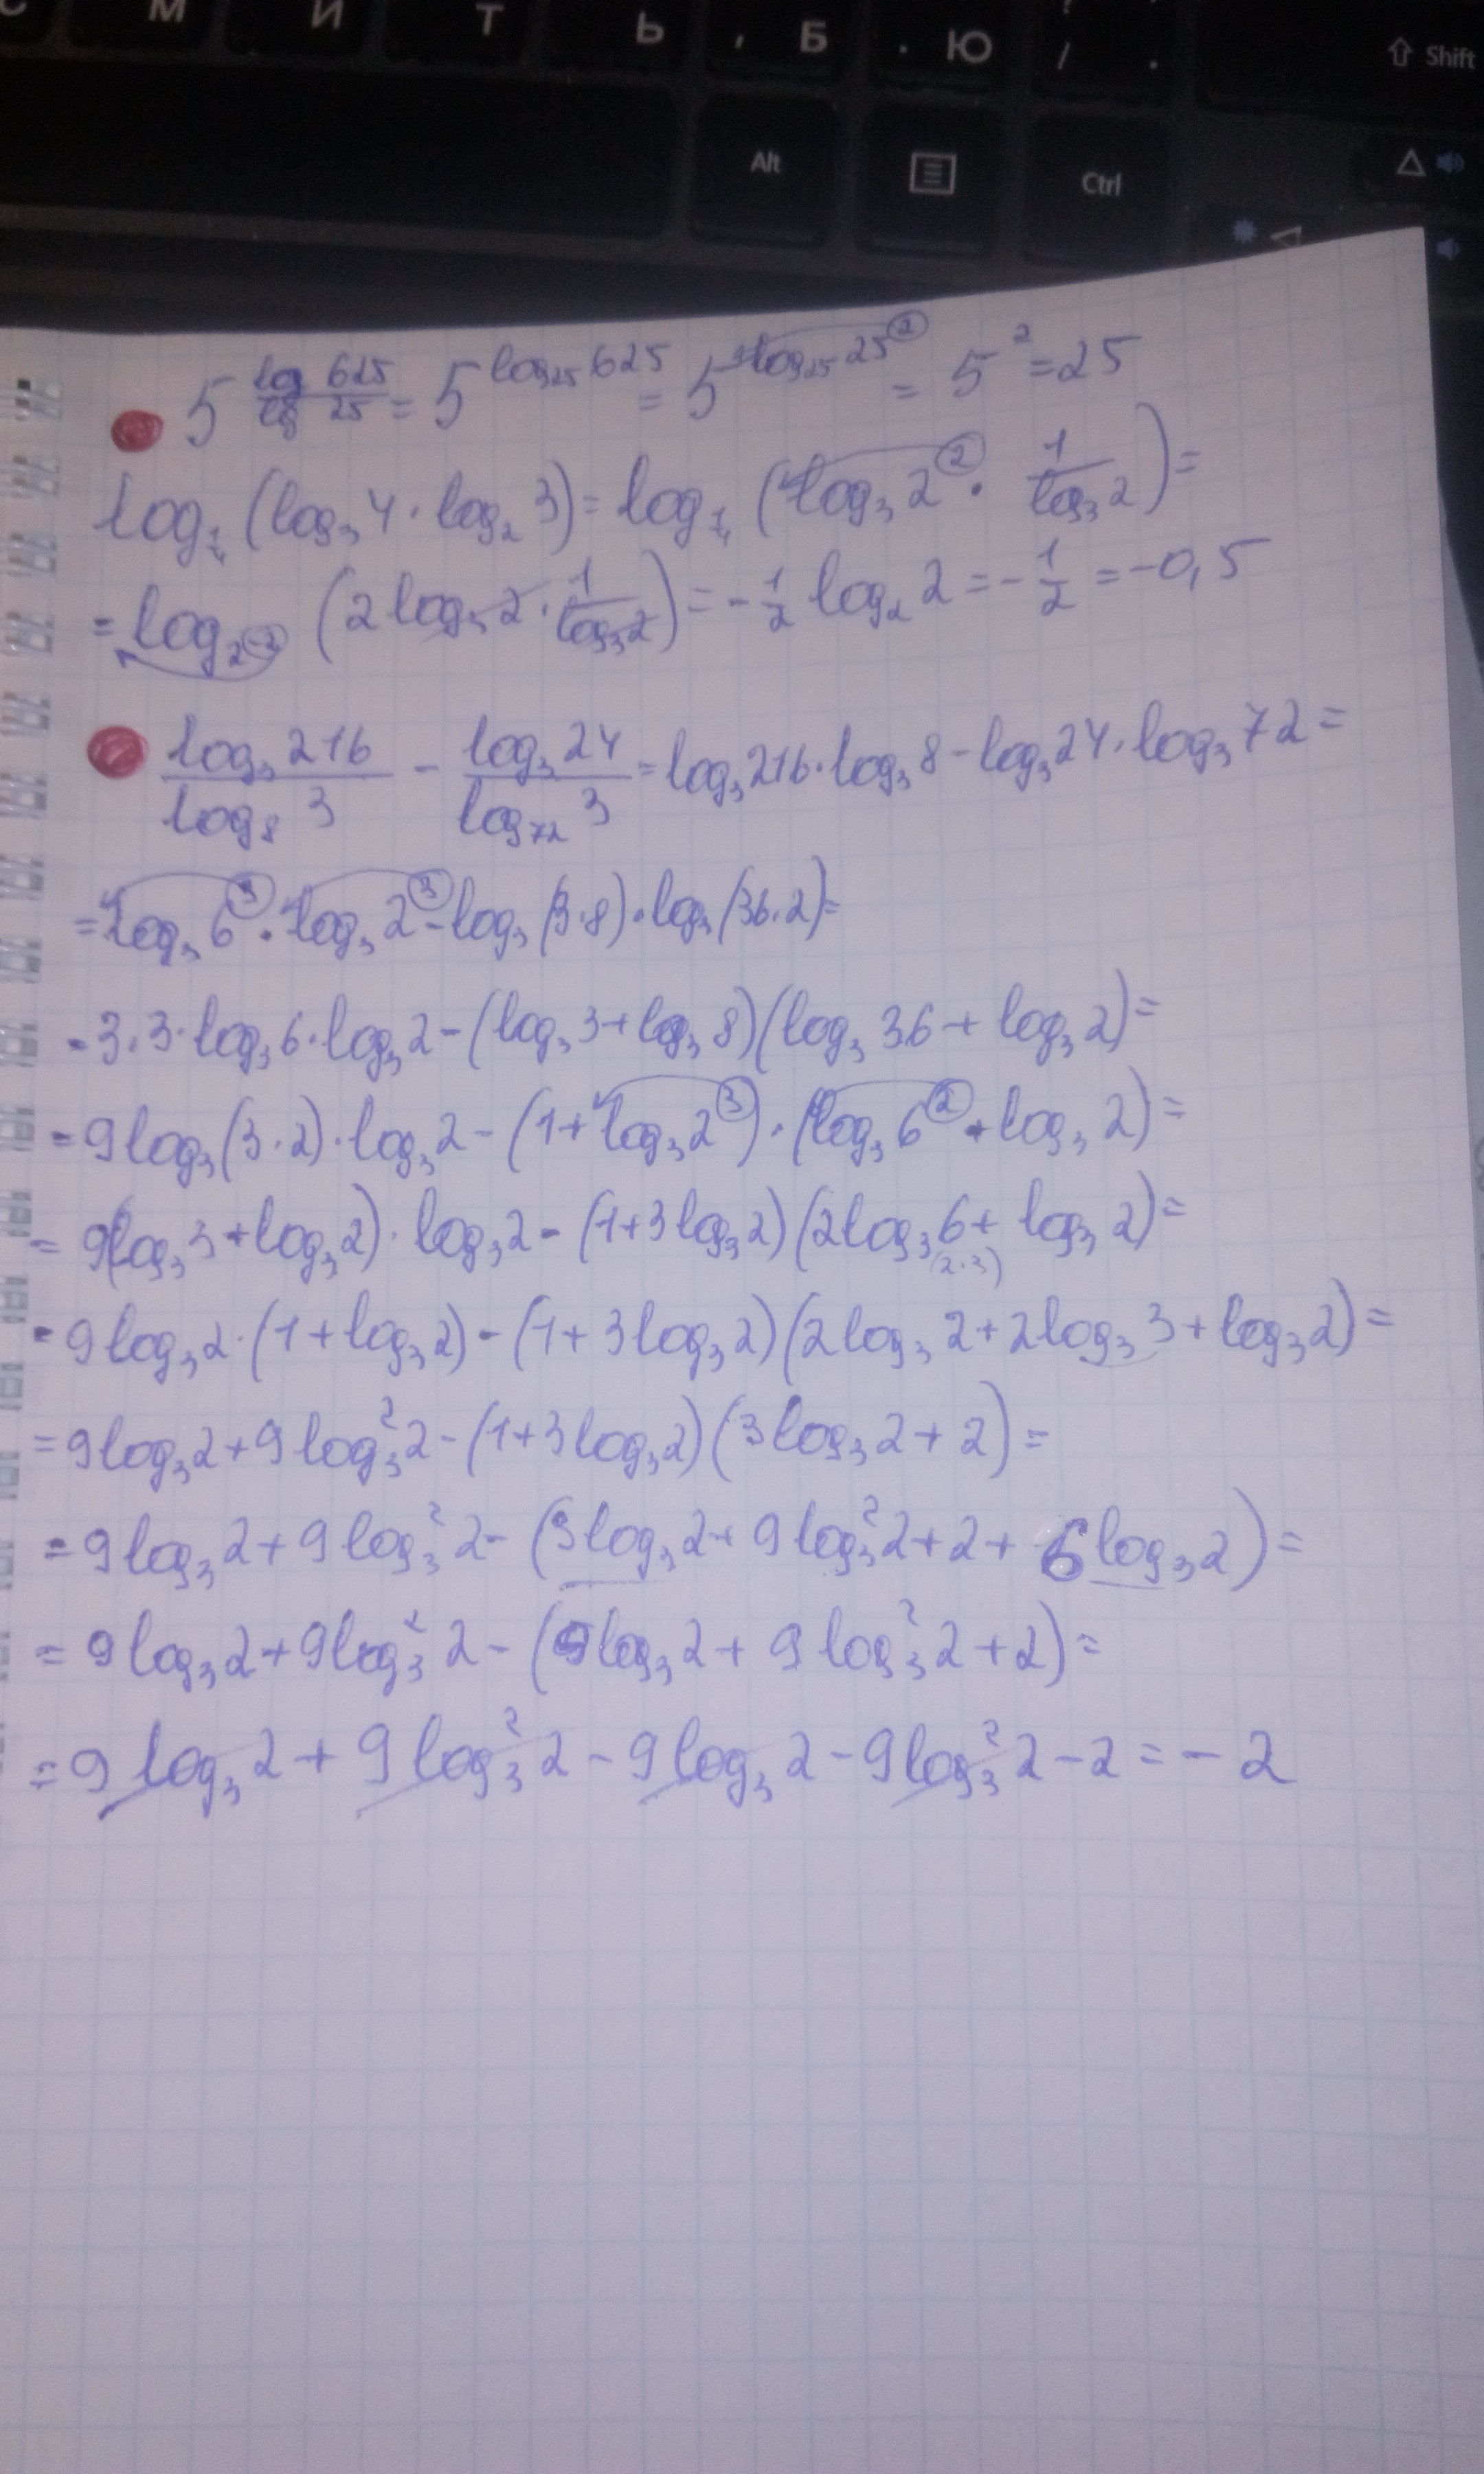 С М И Т Ь , Б . Ю / . ⇧ Shift
Alt Ctrl
5^(lg 625 / lg 25) = 5^(log₂₅ 625) = 5^(log₂₅ 25²) = 5² = 25
log_(1/4) (log₃ 4 · log₂ 3) = log_(1/4) (log₃ 2² · 1/(log₃ 2)) =
= log_(2⁻²) (2 log₃ 2 · 1/(log₃ 2)) = - 1/2 log₂ 2 = - 1/2 = -0,5
(log₃ 216)/(log₈ 3) - (log₃ 24)/(log₇₂ 3) = log₃ 216 · log₃ 8 - log₃ 24 · log₃ 72 =
= log₃ 6³ · log₃ 2³ - log₃ (3·8) · log₃ (36·2) =
= 3·3· log₃ 6 · log₃ 2 - (log₃ 3 + log₃ 8)(log₃ 36 + log₃ 2) =
= 9 log₃ (3·2) · log₃ 2 - (1 + log₃ 2³) · (log₃ 6² + log₃ 2) =
= 9(log₃ 3 + log₃ 2) · log₃ 2 - (1 + 3 log₃ 2)(2 log₃ 6 + log₃ 2) =
(2·3)
= 9 log₃ 2 · (1 + log₃ 2) - (1 + 3 log₃ 2)(2 log₃ 2 + 2 log₃ 3 + log₃ 2) =
= 9 log₃ 2 + 9 log₃² 2 - (1 + 3 log₃ 2)(3 log₃ 2 + 2) =
= 9 log₃ 2 + 9 log₃² 2 - (3 log₃ 2 + 9 log₃² 2 + 2 + 6 log₃ 2) =
= 9 log₃ 2 + 9 log₃² 2 - (9 log₃ 2 + 9 log₃² 2 + 2) =
= 9 log₃ 2 + 9 log₃² 2 - 9 log₃ 2 - 9 log₃² 2 - 2 = - 2